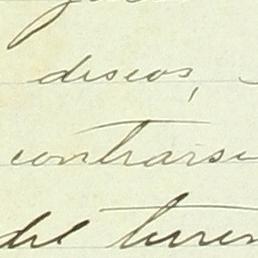 deseos,
contrarse
del terren